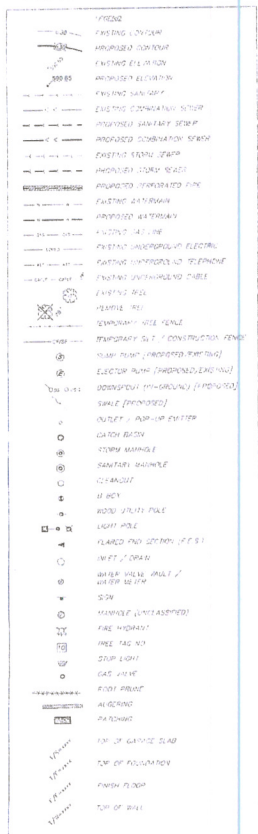 LEGEND
EXISTING CONTOUR
PROPOSED CONTOUR
EXISTING ELEVATION
PROPOSED ELEVATION
EXISTING SANITARY
EXISTING COMBINATION SEWER
PROPOSED SANITARY SEWER
PROPOSED COMBINATION SEWER
EXISTING STORM SEWER
PROPOSED STORM SEWER
PROPOSED PERFORATED PIPE
EXISTING WATERMAIN
PROPOSED WATERMAIN
EXISTING GAS LINE
EXISTING UNDERGROUND ELECTRIC
EXISTING UNDERGROUND TELEPHONE
EXISTING UNDERGROUND CABLE
EXISTING TREE
REMOVE TREE
TEMPORARY TREE FENCE
TEMPORARY SILT / CONSTRUCTION FENCE
SUMP PUMP [PROPOSED/EXISTING]
EJECTOR PUMP [PROPOSED/EXISTING]
DOWNSPOUT (IN-GROUND) [PROPOSED]
SWALE [PROPOSED]
OUTLET / POP-UP EMITTER
CATCH BASIN
STORM MANHOLE
SANITARY MANHOLE
CLEANOUT
B BOX
WOOD UTILITY POLE
LIGHT POLE
FLARED END SECTION (F.E.S.)
INLET / DRAIN
WATER VALVE VAULT /
WATER METER
SIGN
MANHOLE (UNCLASSIFIED)
FIRE HYDRANT
TREE TAG NO
STOP LIGHT
GAS VALVE
ROOT PRUNE
AUGERING
PATCHING
TOP OF GARAGE SLAB
TOP OF FOUNDATION
FINISH FLOOR
TOP OF WALL